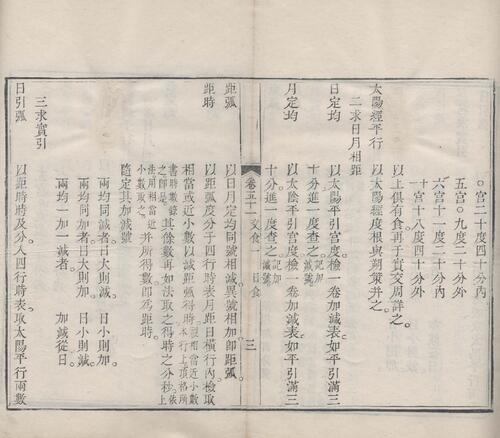 〇宫二十度四十分内
五宫〇九度二十分外
六宫十一度二十分内
十一宫十八度四十分外
以上俱有食再于實交周詳之
太陽經平行 以太陽經度根與朔策并之
二求日月相距
日定均 以太陽平引宫度檢一卷加減表如平引滿三
十分進一度查之記加減號
月定均 以太陰平引宫度檢一卷加減表如平引滿三
十分進一度查之記加減號
卷五十一 交食一 日食 三
距弧 以日月定均同號相減異號相加即距弧
距時 以距弧度分于四行時表月距日横行内檢取
相當或近小數以減距弧得時本行上頂格所書時數錄之即是其餘數再如法取之得時之分秒上依法用相當近小數取之并所得數即為距時
隨定其加減號
兩均同減者日大則減 日小則加
兩均同加者日大則加 日小則減
兩均一加一減者 加減從日
三求實引
日引弧 以距時時及分入四行時表取太陽平行兩數